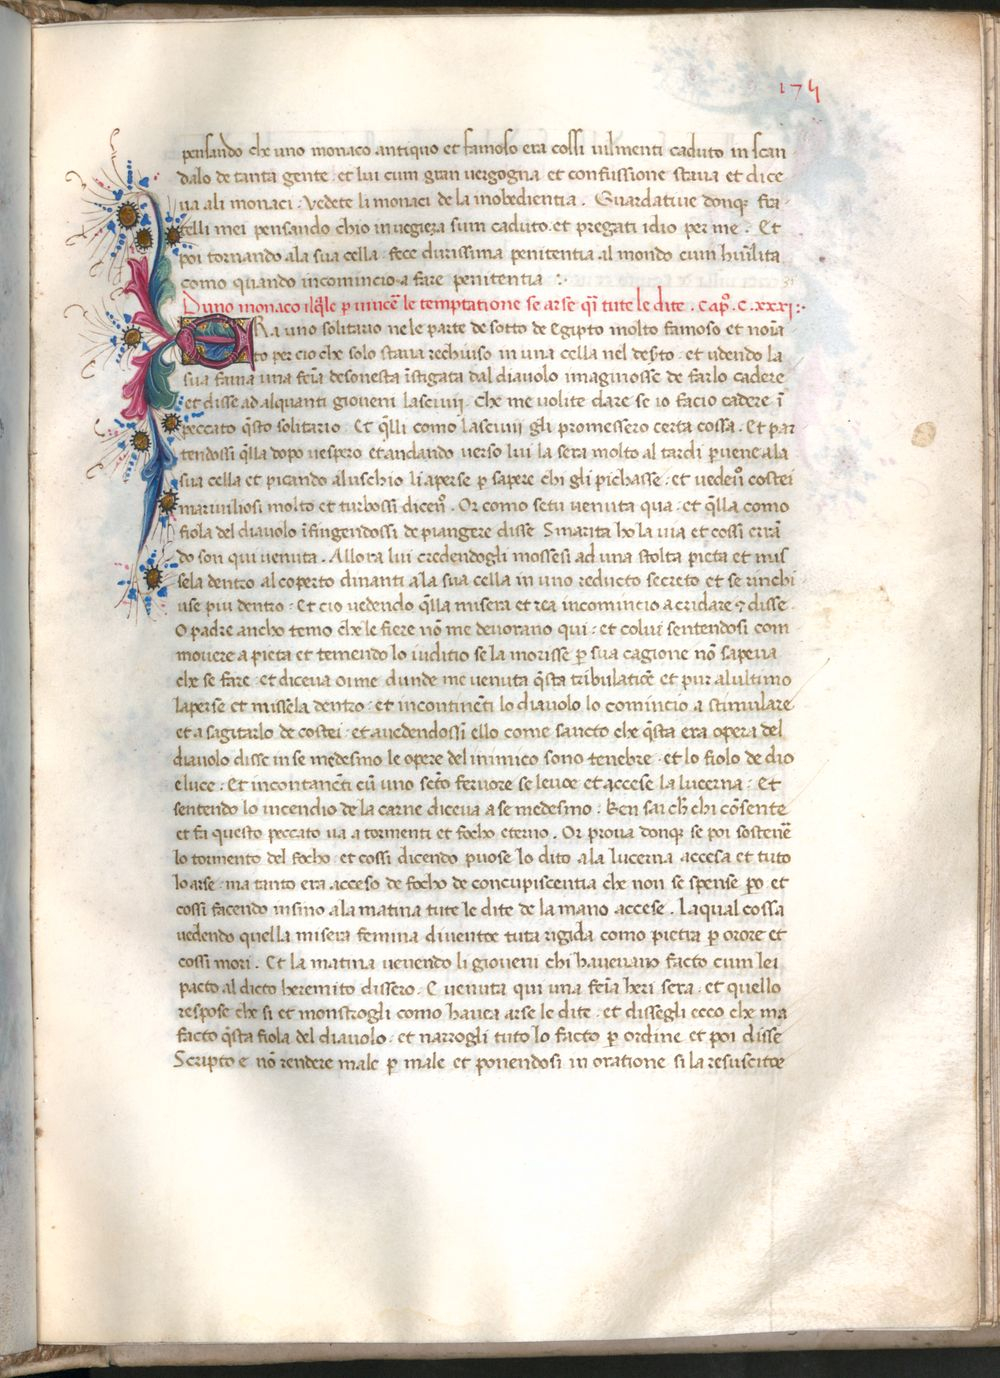 174
pensando che uno monaco antiquo et famoso era cossi vilmenti caduto in scan
dalo de tanta gente · et lui cum gran uergogna et confussione staua et dice
ua ali monaci · Vedete li monaci de la inobedientia . Guardatiue donq₃ fra
telli mei pensando chio in uegieza sum caduto · et pregati idio per me · Et
poi tornando ala sua cella · fece durissima penitentia al mondo cum humilita
como quando incomincio a fare penitentia :·
Duno monaco ilq̃le p̱ uincẽ le temptatione se arse q̃i tute le dite . Cap̃ . C . xxxi :·
ERa uno solitario nele parte de sotto de Egipto molto famoso et noĩa
to per cio che solo staua rechiuso in una cella nel deserto · et udendo la
sua fama una feĩa desonesta ĩstigata dal diauolo imaginosse de farlo cadere
et disse ad alquanti gioueni lasciuii . Che me uolite dare se io facio cadere ĩ
peccato q̃sto solitario · Et q̃lli como lasciuii gli promessero certa cossa . Et par
tendossi q̃lla dopo uespero et andando uerso lui la sera molto al tardi p̱uene ala
sua cella et picando al uschio li aperse p̱ sapere chi gli pichasse · et uedeñ costei
marauiliosi molto et turbossi diceñ . Or como setu uenuta qua · et q̃lla como
fiola del diauolo ĩfingendossi de piangere disse Smarita ho la uia et cossi errã
do son qui uenuta . Allora lui credendogli mossesi ad una stolta pieta et mis
sela dentro al coperto dinanti ala sua cella in uno reducto secreto et se rinchi
use piu dentro · Et cio uedendo q̃lla misera et rea incomincio a cridare ⁊ disse
O padre ancho temo che le fiere nõ me deuorano qui · et colui sentendosi com
mouere a pieta et temendo lo iuditio se la morisse p̱ sua cagione nõ sapeua
che se fare · et diceua oime dunde me uenuta q̃sta tribulatiõe et pur al ultimo
laperse et missela dentro · et incontinẽti lo diauolo lo comincio a stimulare
et a sagitarlo de costei · et auedendossi ello come sancto che q̃sta era opera del
diauolo disse in se medesmo le opere del inimico sono tenebre · et lo fiolo de dio
e luce · Et incontanẽti cũ uno scõ feruore se leuoe et accese la lucerna · Et
sentendo lo incendio de la carne diceua a se medesmo . Ben sai ch̃ chi cõsente
et fa questo peccato ua a tormenti et focho eterno . Or proua donq₃ se poi sostenẽ
lo tormento del focho · et cossi dicendo puose lo dito a la lucerna accesa et tuto
lo arse · ma tanto era acceso de focho de concupiscentia che non se spense p̱o et
cossi facendo insino ala matina tute le dite de la mano accese . Laqual cossa
uedendo quella misera femina diuentoe tuta rigida como pietra p̱ orore et
cossi mori . Et la matina uenendo li gioueni chi haueuano facto cum lei
pacto al dicto heremito dissero · E uenuta qui una feĩa heri sera · et quello
respose che si et monstrogli como haueua arse le dite · et dissegli ecco che ma
facto q̃sta fiola del diauolo · et narrogli tuto lo facto p̱ ordine et poi disse
Scripto e nõ rendere male p̱ male et ponendosi in oratione si la resuscitoe